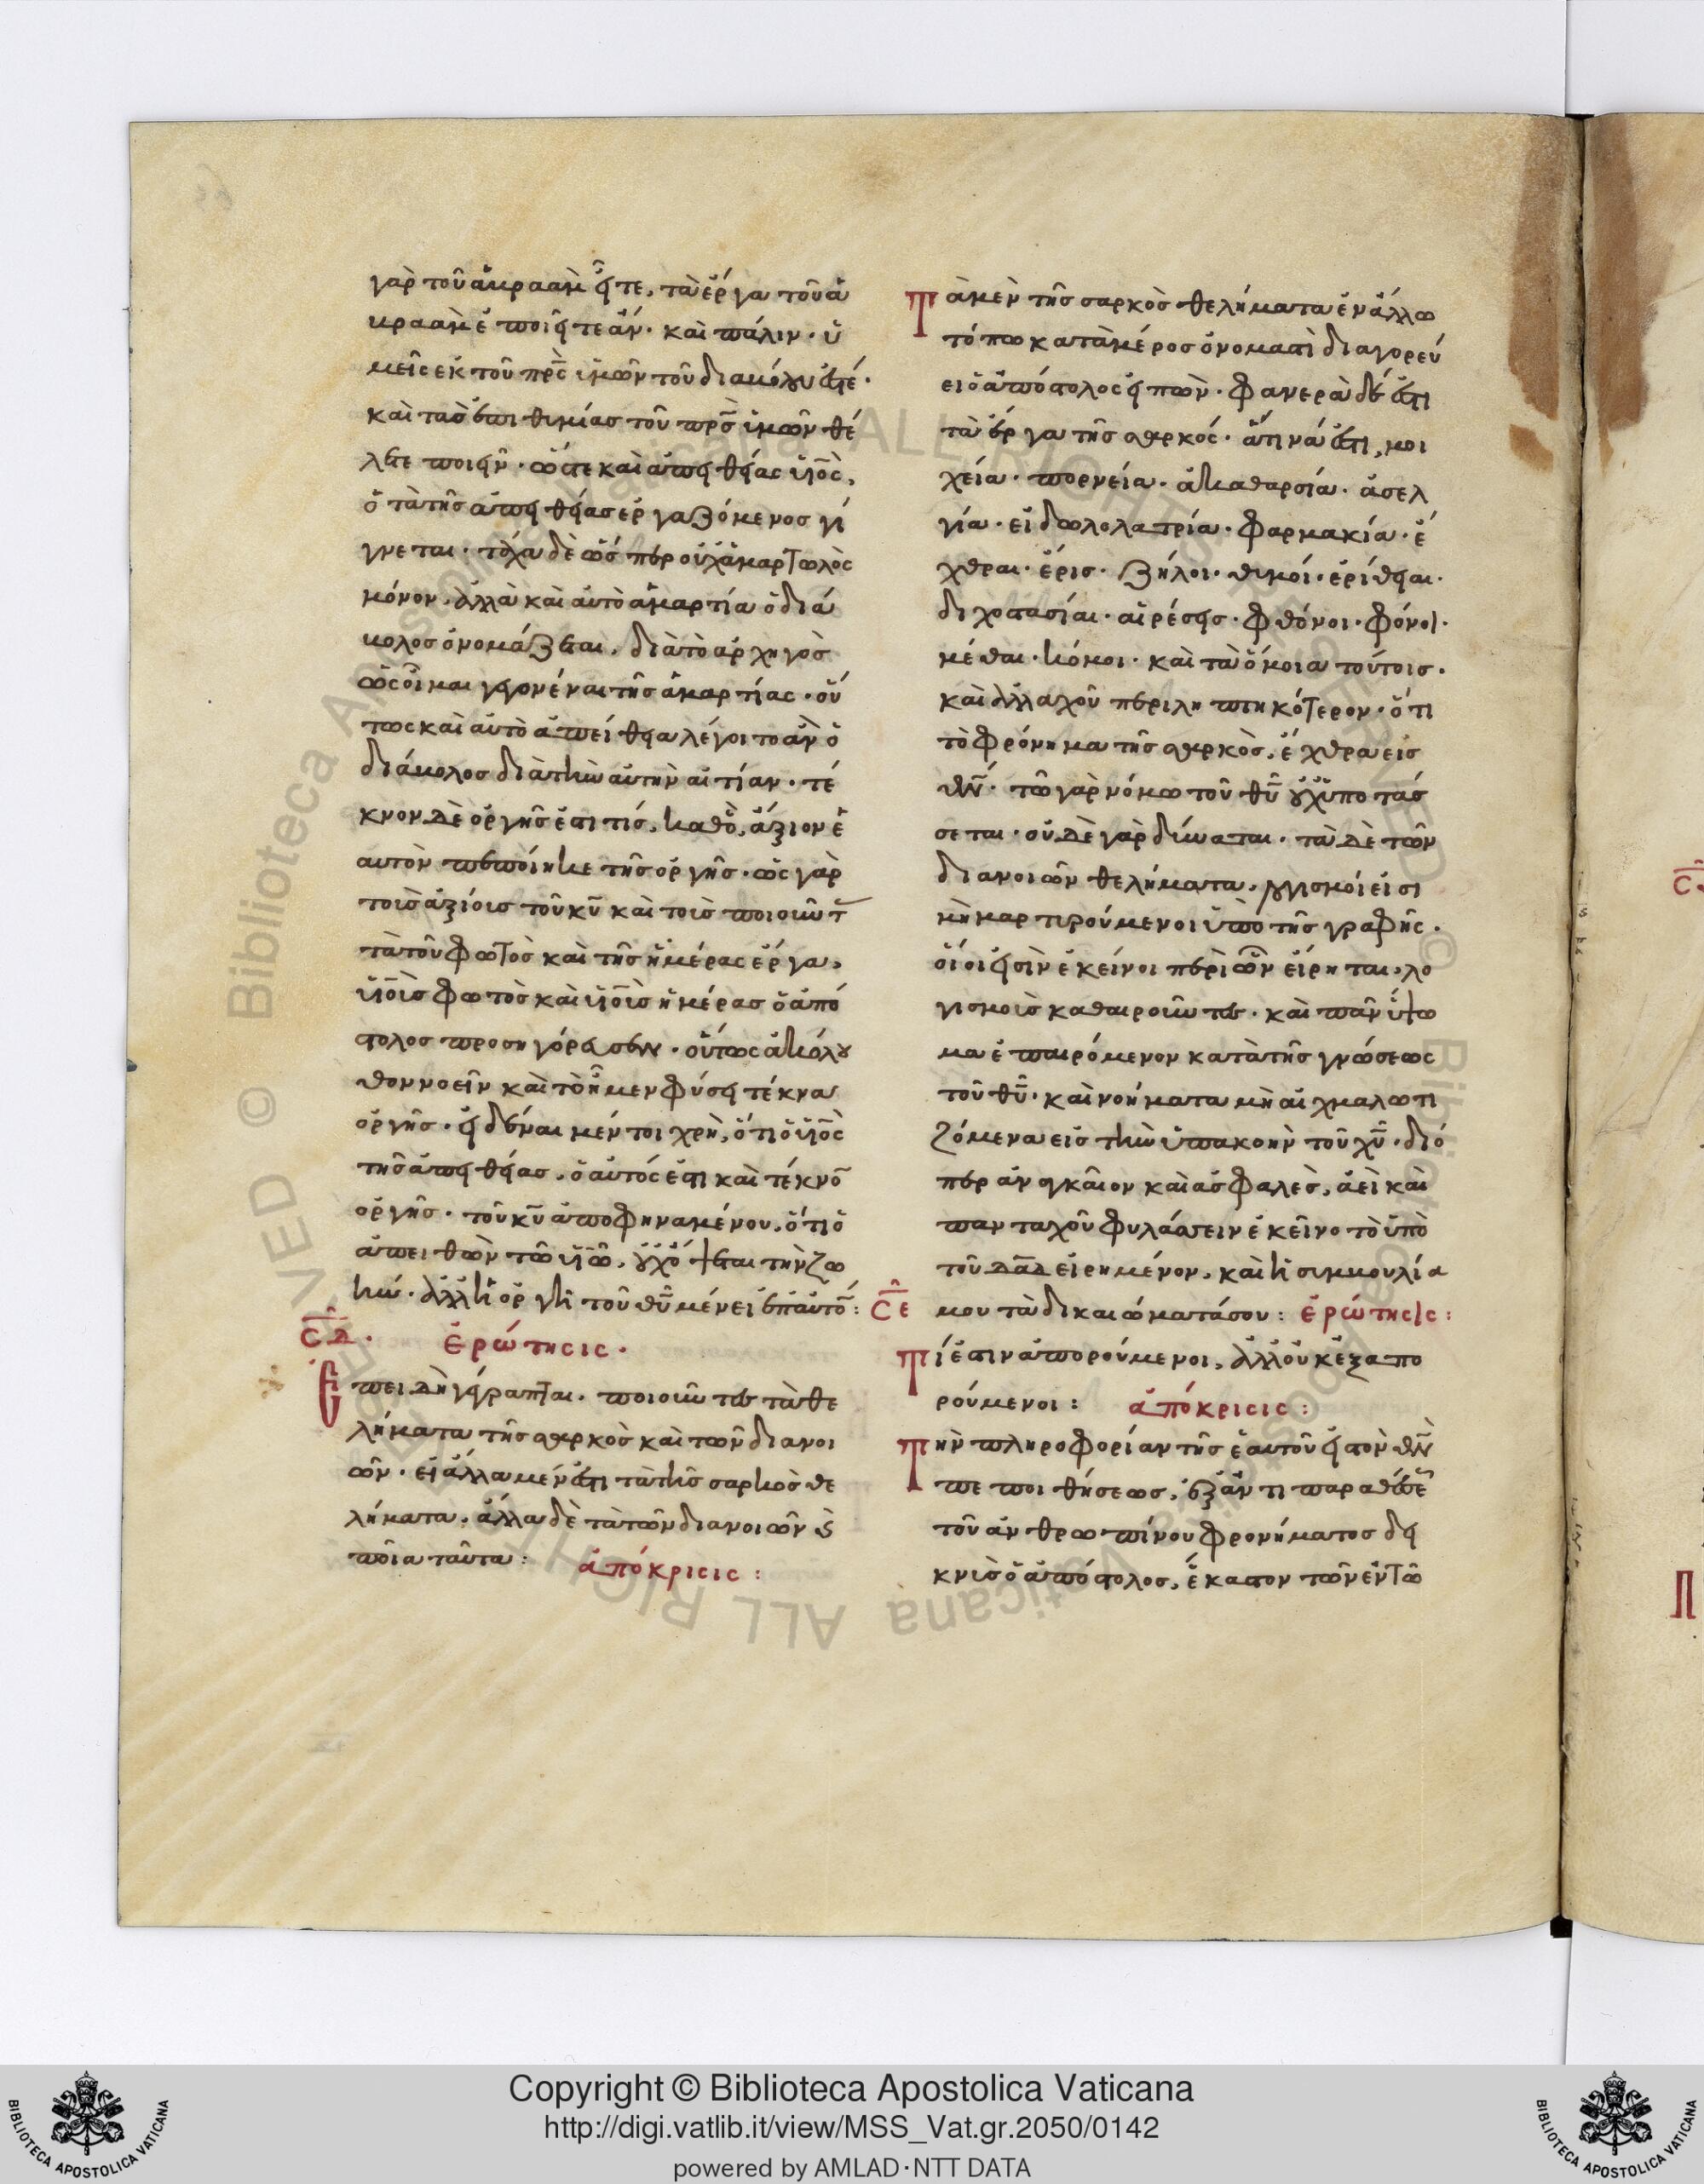 γὰρ τοῦ ἀβραὰμ ἦτε, τὰ ἔργα τοῦ ἀ
βραὰμ ἐποιεῖτε ἄν· καὶ πάλιν· ὑ
μεῖς ἐκ τοῦ πρ̅ς ὑμῶν τοῦ διαβόλου ἐστέ·
καὶ τὰς ἐπιθυμίας τοῦ πρ̅ς ὑμῶν θέ
λετε ποιεῖν· ὥστε καὶ ἀπειθείας υἱὸς,
ὁ τὰ τῆς ἀπειθείας ἐργαζόμενος γί
γνεται· τάχα δὲ ὥσπερ οὐχ ἁμαρτωλὸς
μόνον, ἀλλὰ καὶ αὐτὸ ἁμαρτία ὁ διά
βολος ὀνομάζεται, διὰ τὸ ἀρχηγὸς
ὡς οἶμαι γεγονέναι τῆς ἁμαρτίας· οὕ
τως καὶ αὐτὸ ἀπείθεια λέγοιτο ἂν ὁ
διάβολος διὰ τὴν αὐτὴν αἰτίαν· τέ
κνον δὲ ὀργῆς ἐστί τις, καθὸ, ἄξιον ἑ
αυτὸν πεποίηκε τῆς ὀργῆς· ὡς γὰρ
τοὺς ἀξίους τοῦ κ̅υ καὶ τοὺς ποιοῦντ
τὰ τοῦ φωτὸς καὶ τῆς ἡμέρας ἔργα,
υἱοὺς φωτὸς καὶ υἱοὺς ἡμέρας ὁ ἀπό
στολος προσηγόρευσεν· οὕτως ἀκόλου
θον νοεῖν καὶ τὸ ἦμεν φύσει τέκνα
ὀργῆς· εἰδέναι μέντοι χρὴ, ὅτι ὁ υἱὸς
τῆς ἀπειθείας, ὁ αὐτός ἐστι καὶ τέκνο̅
ὀργῆς· τοῦ κ̅υ ἀποφηναμένου, ὅτι ὁ
ἀπειθῶν τῷ υἱῷ, οὐχ ὄψεται τὴν ζω
ήν· ἀλλ' ἡ ὀργὴ τοῦ θ̅υ μένει ἐπ' αὐτό̅:
σ̅δ· ἐρώτησις·
Ἐπειδὴ γέγραπται· ποιοῦντες τὰ θε
λήματα τῆς σαρκὸς καὶ τῶν διανοι
ῶν· εἰ ἄλλα μέν ἐστι τὰ τῆς σαρκὸς θε
λήματα, ἄλλα δὲ τὰ τῶν διανοιῶν κ
ποῖα ταῦτα: ἀπόκρισις:
Τὰ μὲν τῆς σαρκὸς θελήματα ἐν ἄλλω
τόπω κατὰ μέρος ὀνομαστὶ διαγορεύ
ει ὁ ἀπόστολος εἰπὼν· φανερὰ δέ ἐστι
τὰ ἔργα τῆς σαρκός· ἅτινά ἐστι, μοι
χεία· πορνεία· ἀκαθαρσία· ἀσελ
γία· εἰδωλολατρία· φαρμακία· ἔ
χθραι· ἔρις· ζῆλοι· θυμοί· ἐρίθειαι·
διχοστασίαι· αἱρέσεις· φθόνοι· φόνοι·
μέθαι· κόμοι· καὶ τὰ ὅμοια τούτοις·
καὶ ἀλλαχοῦ περιληπτικότερον· ὅτι
τὸ φρόνημα τῆς σαρκὸς, ἔχθρα εἰς
θ̅ν· τῷ γὰρ νόμω τοῦ θ̅υ οὐχ ὑποτάσ
σεται· οὐδὲ γὰρ δύναται· τὰ δὲ τῶν
διανοιῶν θελήματα, λογισμοί εἰσι
μὴ μαρτυρούμενοι ὑπὸ τῆς γραφῆς·
οἷοι εἰσὶν ἐκεῖνοι περὶ ὧν εἴρηται, λο
γισμοὺς καθαιροῦντες· καὶ πᾶν ὕψω
μα ἐπαιρόμενον κατὰ τῆς γνώσεως
τοῦ θ̅υ· καὶ νοήματα μὴ αἰχμαλωτι
ζόμενα εἰς τὴν ὑπακοὴν τοῦ χ̅υ· διό
περ ἀναγκαῖον καὶ ἀσφαλὲς, ἀεὶ καὶ
πανταχοῦ φυλάττειν ἐκεῖνο τὸ ὑπὸ
τοῦ δ̅α̅δ εἰρημένον, καὶ ἡ συμβουλία
σ̅ε μου τὰ δικαιώματά σου: ἐρώτησις:
Τί ἐστιν ἀπορούμενοι, ἀλλ' οὐκ ἐξαπο
ρούμενοι: ἀπόκρισις:
Τὴν πληροφορίαν τῆς ἑαυτοῦ εἰς τὸν θ̅ν
πεποιθήσεως, ἐξ ἀντιπαραθέσε
τοῦ ἀνθρωπίνου φρονήματος δει
κνὺς ὁ ἀπόστολος, ἕκαστον τῶν ἐν τῷ
Copyright © Biblioteca Apostolica Vaticana
http://digi.vatlib.it/view/MSS_Vat.gr.2050/0142
powered by AMLAD·NTT DATA